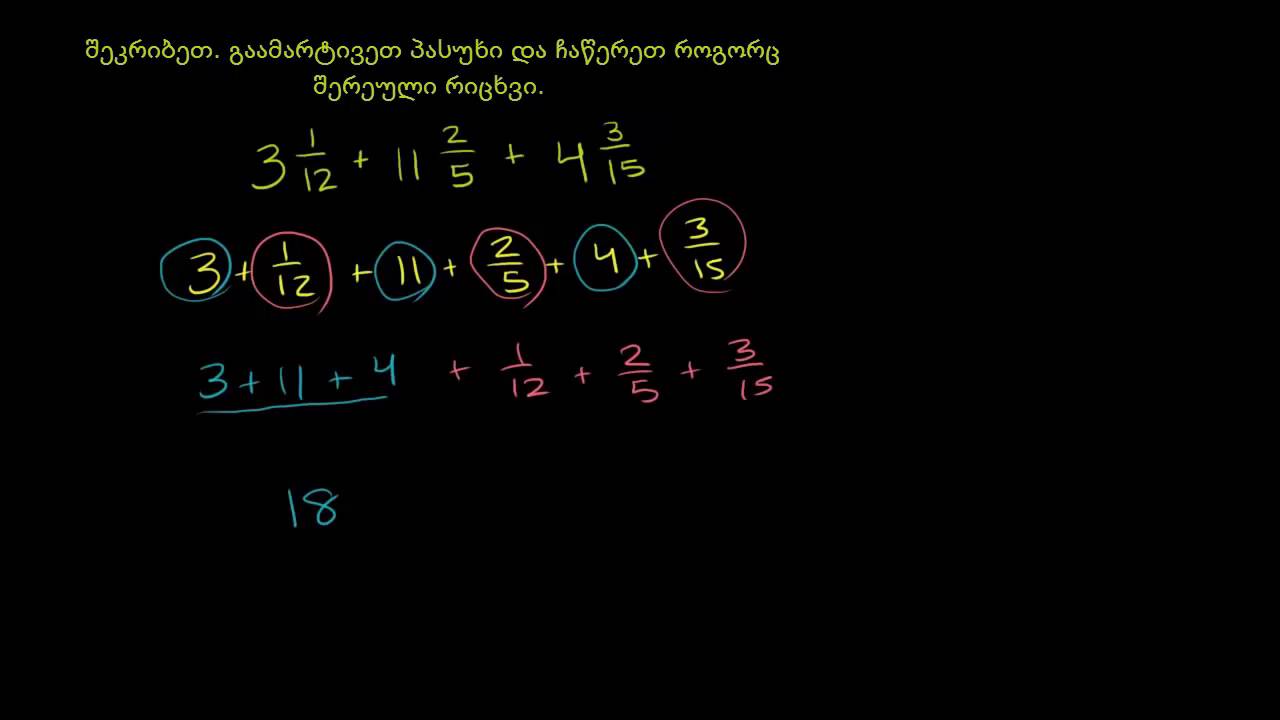 შეკრიბეთ. გაამარტივეთ პასუხი და ჩაწერეთ როგორც
შერეული რიცხვი.
3 1/12 + 11 2/5 + 4 3/15
3 + 1/12 + 11 + 2/5 + 4 + 3/15
3 + 11 + 4 + 1/12 + 2/5 + 3/15
18